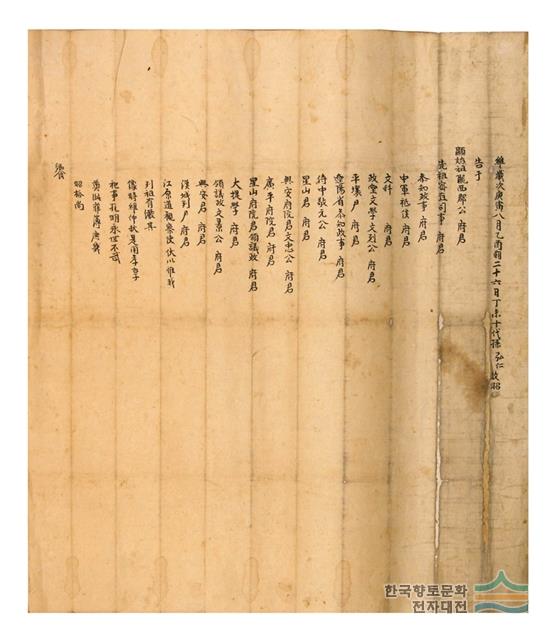 維歲次庚寅八月乙酉朔二十六日丁未十代孫 弘仁 敢昭
告于
顯始祖隴西郡公 府君
先祖密直司事 府君
參知政事 府君
中軍 府君
文科 府君
政堂文學文烈公 府君
平壤尹 府君
遼陽省參知政事 府君
侍中敬元公 府君
星山君 府君
興安府院君文忠公 府君
廣平府院君 府君
星山府院君領議政 府君
大提學 府君
領議政文景公 府君
興安君 府君
漢城判尹 府君
江原道觀察使 伏以惟我
列祖有儼其
像時維仲秋是用孝享
祀事孔明永世不忒
黃 薄庶羞
昭格尚
饗
한국향토문화
전자대전